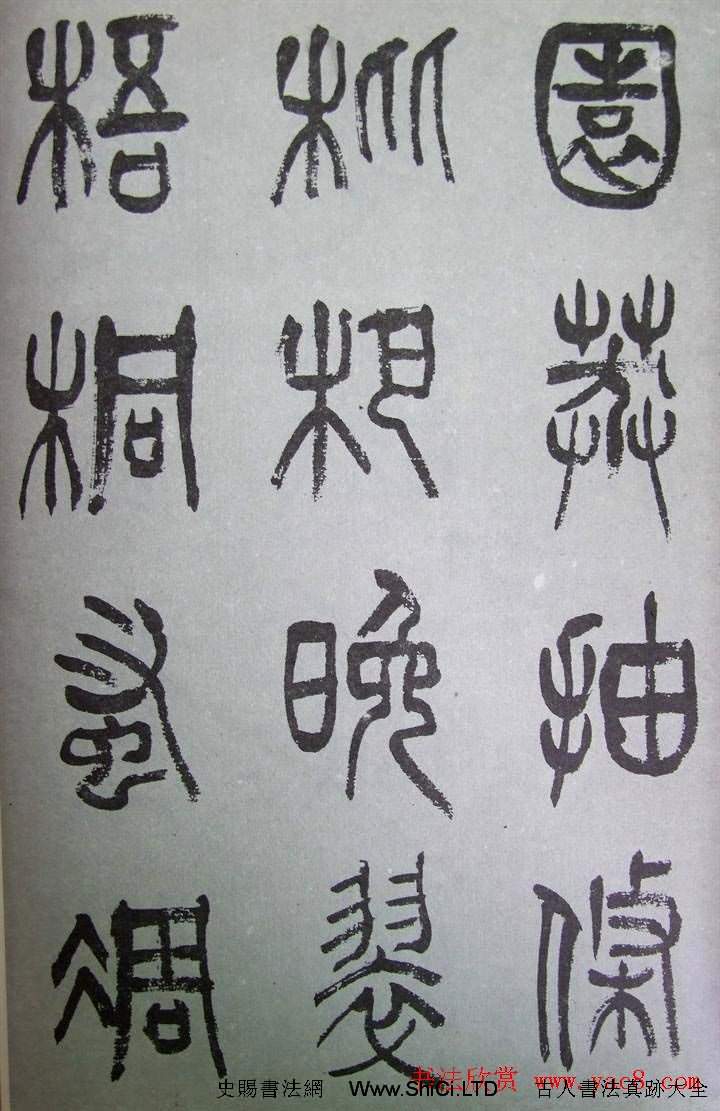 園莽抽條
枇杷晚翠
梧桐蚤凋
书法欣赏 www.yac8.com
史賜書法網 Www.ShiCi.LTD 古人書法真跡大全